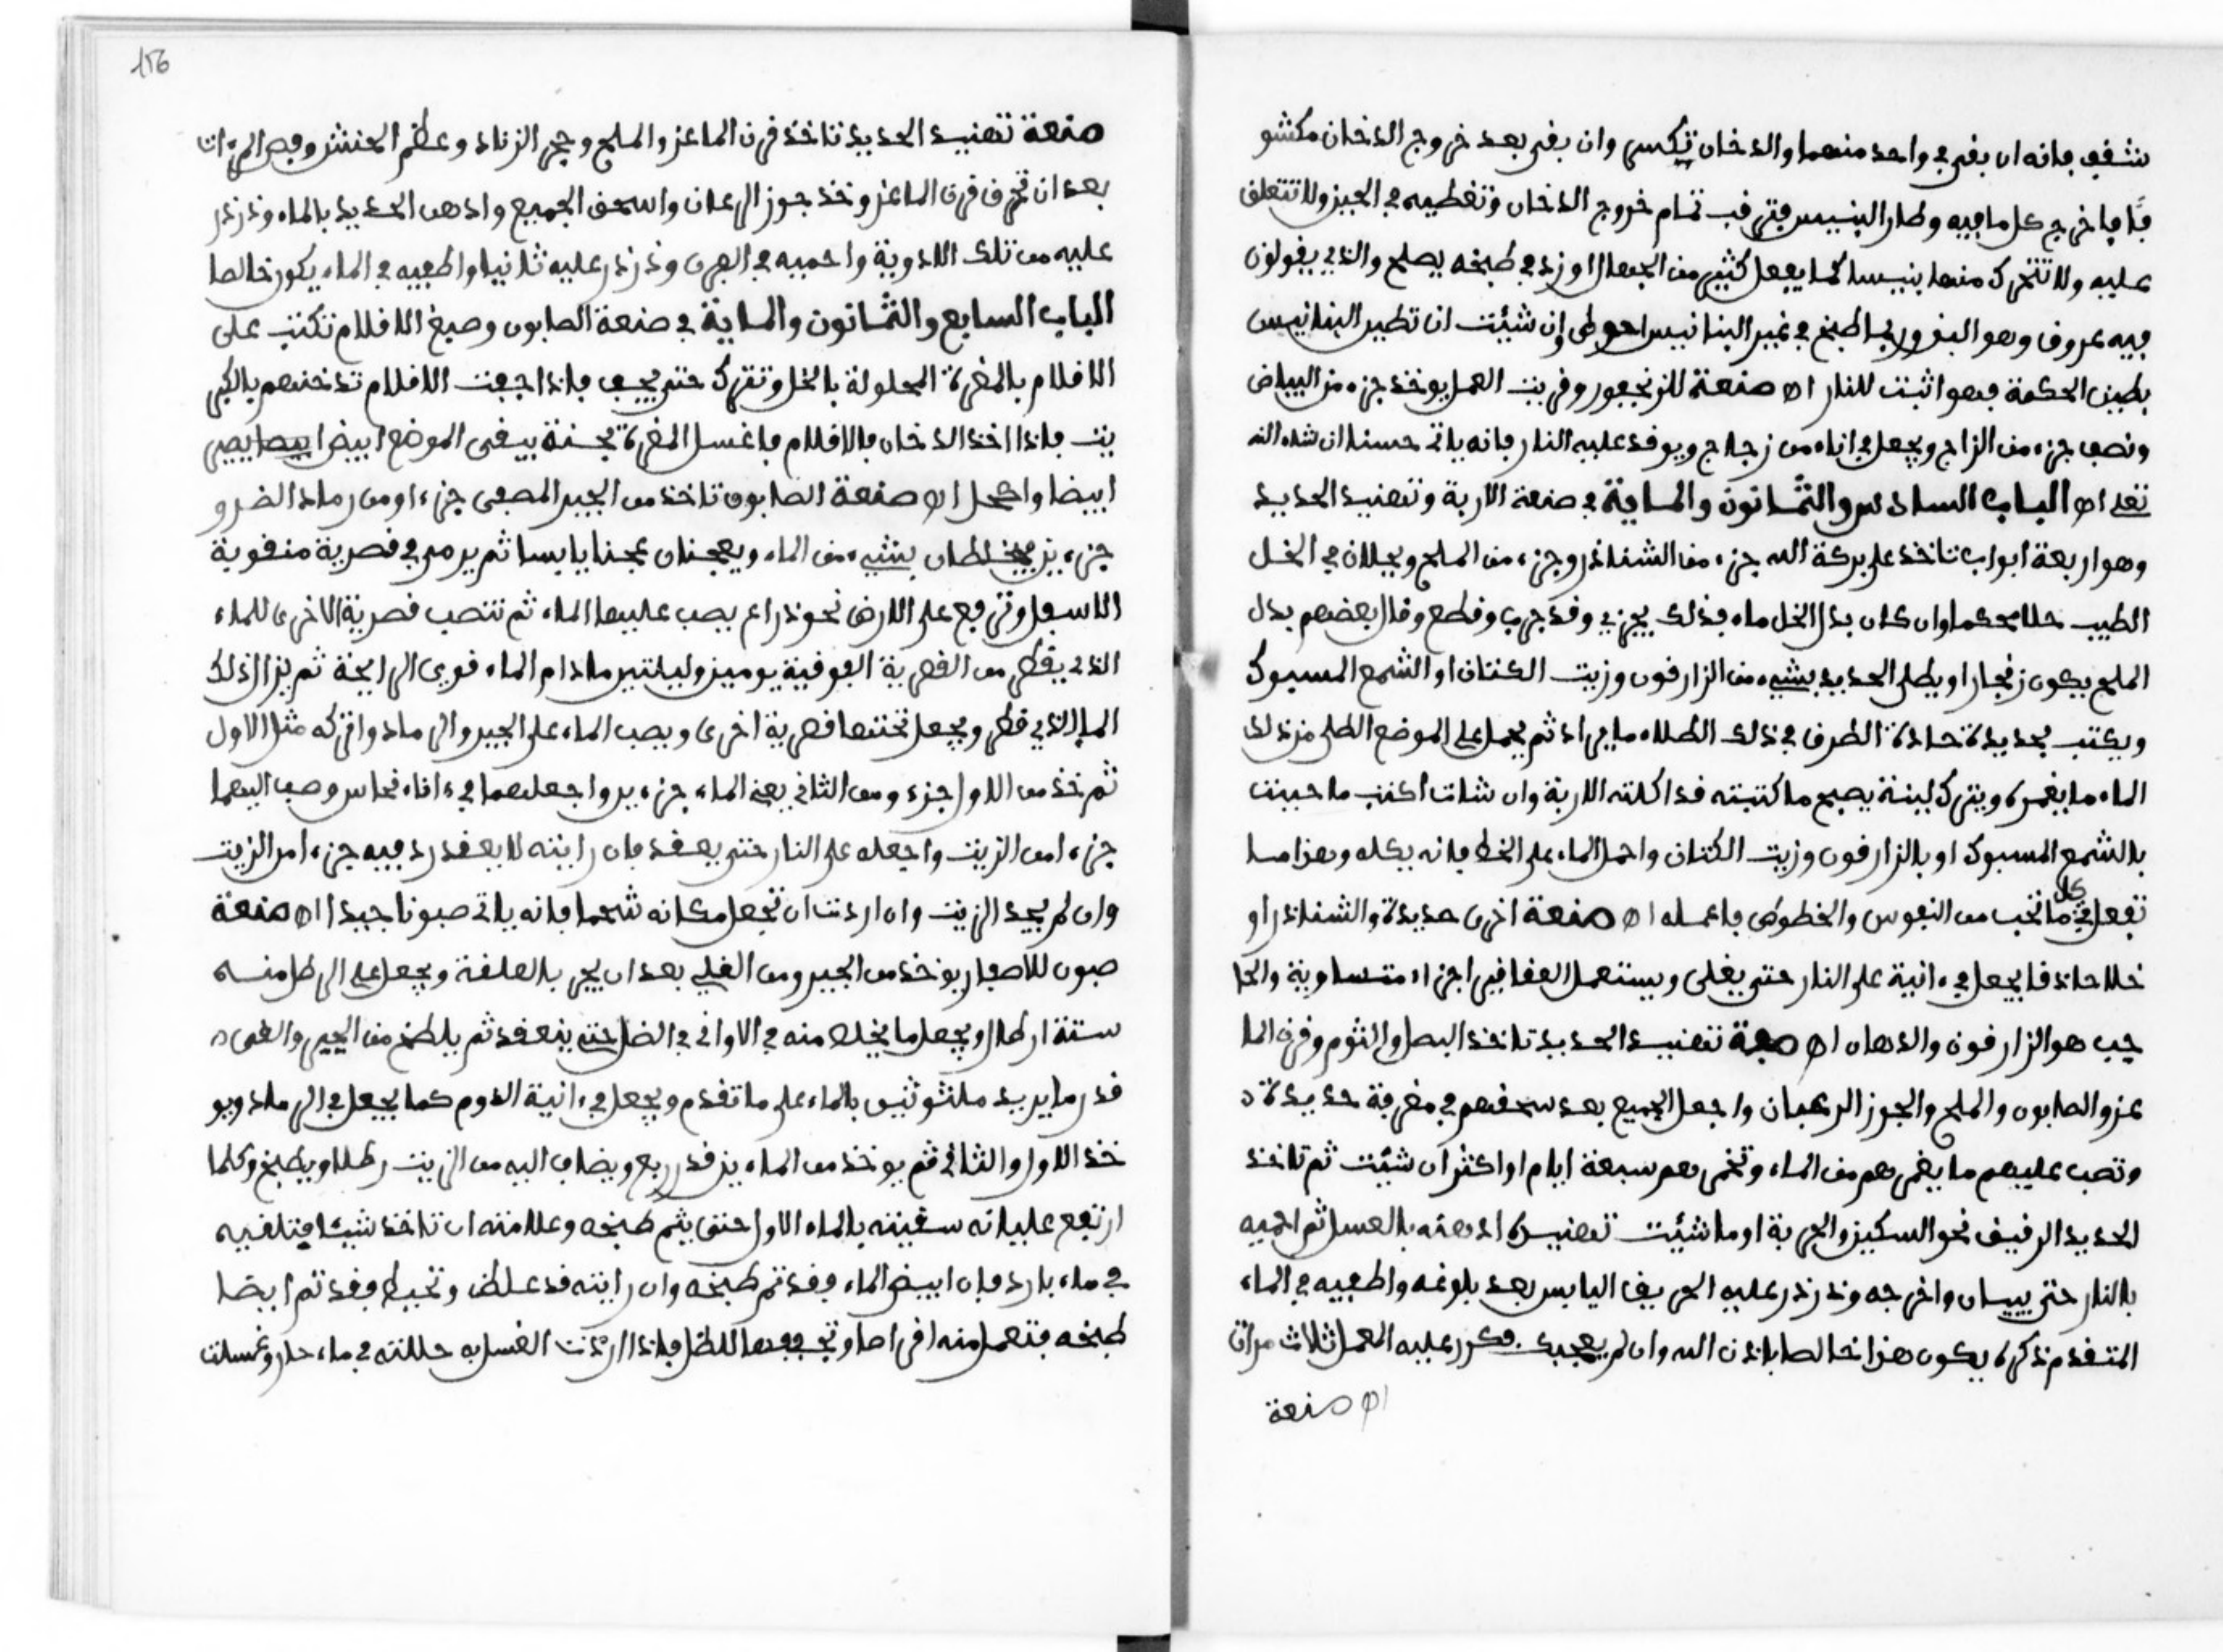 تشفف فانه ان بقى في واحد منهما والدخان تنكسر وان بقى بعد خروج الدخان مكشو
فا فاخرج كل ما فيه وطار البنيس فترقب تمام خروج الدخان وتغطيه في الجبز ولا تتعلق
عليه ولا تتحرك منها بنيسا كما يفعل كثير من الجهال او زد في طبخه يصلح والذي يقولون
فيه معروف وهو البغور بما طبخ في غير البنانيس احوط وإن شئت ان تطير البنانيس
بطين الحكمة فهو اثبت للنار اه صنعة للزنجفور وقريب العمل يوخذ جزء من البياض
ونصف جزء من الزاج ويجعل في اناء من زجاج ويوقد عليه النار فانه ياتى حسنا ان شاء الله
تعلى اه الباب السادس والثمانون والماية في صنعة الاربة وتهنيد الحديد
وهو اربعة ابواب تاخذ على بركة الله جزء من الشناذر وجزء من الملح ويحلان في الخل
الطيب حلا محكما وان كان بدل الخل ماء فذلك يجزي وقد جرب وقطع وقال بعضهم بدل
الملح يكون زنجارا ويطلى الحديد بشيء من الزارقون وزيت الكتان او الشمع المسبوك
ويكتب بحديدة حادة الطرف في ذلك الطلاء ما يراد ثم يجعل على الموضع الطلى من ذلك
الماء ما يغمره ويترك لبنة يصبح ما كتبته قد اكلته الاربة وان شات اكتب ما حببت
بالشمع المسبوك او بالزارقون وزيت الكتان واجعل الماء على الخط فانه يكله وهزا مما
تفعل في كل ما تحب من النقوس والخطوط فاعمله اه صنعة اخرى حديدة والشناذر او
خلا حاذقا يجعل في ءانية على النار حتى يغلى ويستعمل العقاقير اجزاء متساوية والحا
جب هو الزارقون والدهان اه صبعة تهنيد الحديد تاخذ البصل والثوم وقرن الما
عز والصابون والملح والجوز الرهبان واجعل الجميع بعد سحقهم في مغرفة حديدة
وتصب عليهم ما يغمرهم من الماء وتخمرهم سبعة ايام او اكثر ان شيت ثم تاخذ
الحديد الرقيف نحو السكين والحربة او ما شئت تهنيده ادهنه بالعسل ثم احميه
بالنار حتى يبسان واخرجه وذرذر عليه الحريف اليابس بعد بلوغه واطفيه في الماء
المتقدم ذكره يكون هزا خالصا باذن الله وان لم يعجبك فكرر عليه العمل ثلاث مرات
اه صنعة
156
صنعة تهنيد الحديد تاخذ قرن الماعز والملح وحجر الزناد وعظم الحنش وفص المرءات
بعد ان تحرق قرن الماعز وخذ جوز الرعان واسحق الجميع وادهن الحديد بالماء وذرذر
عليه من تلك الادوية واحميه في الفرن وذرذر عليه ثانيا واطفيه في الماء يكون خالصا
الباب السابع والثمانون والماية في صنعة الصابون وصبغ الاقلام تكتب على
الاقلام بالمغرة المحلولة بالخل وتترك حتى يجف فاذا جفت الاقلام تدخنهم بالكبر
يت فاذا اخذ الدخان بالاقلام فاغسل المغرة بحسنة يبقى الموضع ابيض ابيصا يصير
ابيضا واكحل اه صنعة الصابون تاخذ من الجير المصفى جزءا ومن رماد الضرو
جزءين يخلطان بشيء من الماء ويعجنان عجنا يابسا ثم يرمى في قصرية منقوبة
الاسفل وترفع على الارض نحو ذراع يصب عليها الماء ثم تنصب قصرية الاخرى للماء
الذي يقطر من القصرية الفوقية يومين وليلتين مادام الماء قوي الرايحة ثم يزال ذلك
الماء الذي قطر ويجعل تحتها قصرية اخرى ويصب الماء على الجير والرماد واتركه مثل الاول
ثم خذ من الاول جزء ومن الثاني يعني الماء جزءين واجعلهما في ءاناء نحاس وصب اليهما
جزءا من الزيت واجعله على النار حتى يعقد فان رايته لا يعقد زد فيه جزءا من الزيت
وان لم يجد الزيت وان اردت ان تجعل مكانه شحما فانه ياتى صبونا جيدا اه صنعة
صبون للاصفار يوخذ من الجير ومن القلي بعد ان يجر بالعلفة ويجعل على الرطل منه
ستة ارطال ويجعل ما يخلص منه في الاواني في الضل حتى ينعقد ثم يلطخ من الجير والغبرة
قدر ما يريد ملثوثين بالماء على ما تقدم ويجعل في ءانية الدوم كما يجعل في الرماد ويو
خذ الاول والثانى ثم يوخذ من الماء ين قدر ربع ويضاف اليه من الزيت رطلا ويطبخ وكلما
ارتفع غليانه سقيته بالماء الاول حتى يتم طبخه وعلامته ان تاخذ شيئا فتلقيه
في ماء بارد فان ابيض الماء فقد تم طبخه وان رايته قد غلظ وتحبط فقد تم ايضا
طبخه فتعمل منه اقراصا وتجففها للظل فاذا اردت الغسل به حللته في ماء حار وغسلت